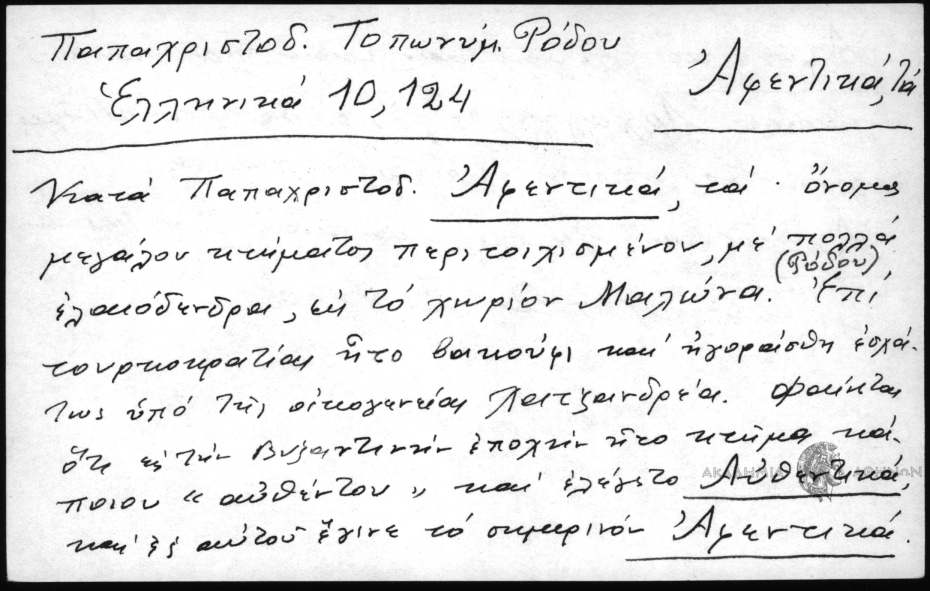 Παπαχριστοδ. Τοπωνύμ. Ρόδου
Ἑλληνικά 10, 124
Ἀφεντικά, τά
Κατά Παπαχριστοδ. Ἀφεντικά, τά · ὄνομα
μεγάλου κτήματος περιτοιχισμένου, μέ πολλά
ἐλαιόδενδρα, εἰς τό χωρίον Μαλώνα. (Ρόδου) Ἐπί
τουρκοκρατίας ἦτο βακούφι καί ἠγοράσθη ἐσχά-
τως ὑπό τῆς οἰκογενείας Χατζανδρέα. Φαίνεται
ὅτι εἰς τήν Βυζαντινήν ἐποχήν ἦτο κτῆμα κά-
ποιου « αὐθέντου » καί ἐλέγετο Αὐθεντικά,
καί ἐξ αὐτοῦ ἔγινε τό σημερινόν Ἀφεντικά.
ΑΚΑΔΗΜΙΑ ΑΘΗΝΩΝ